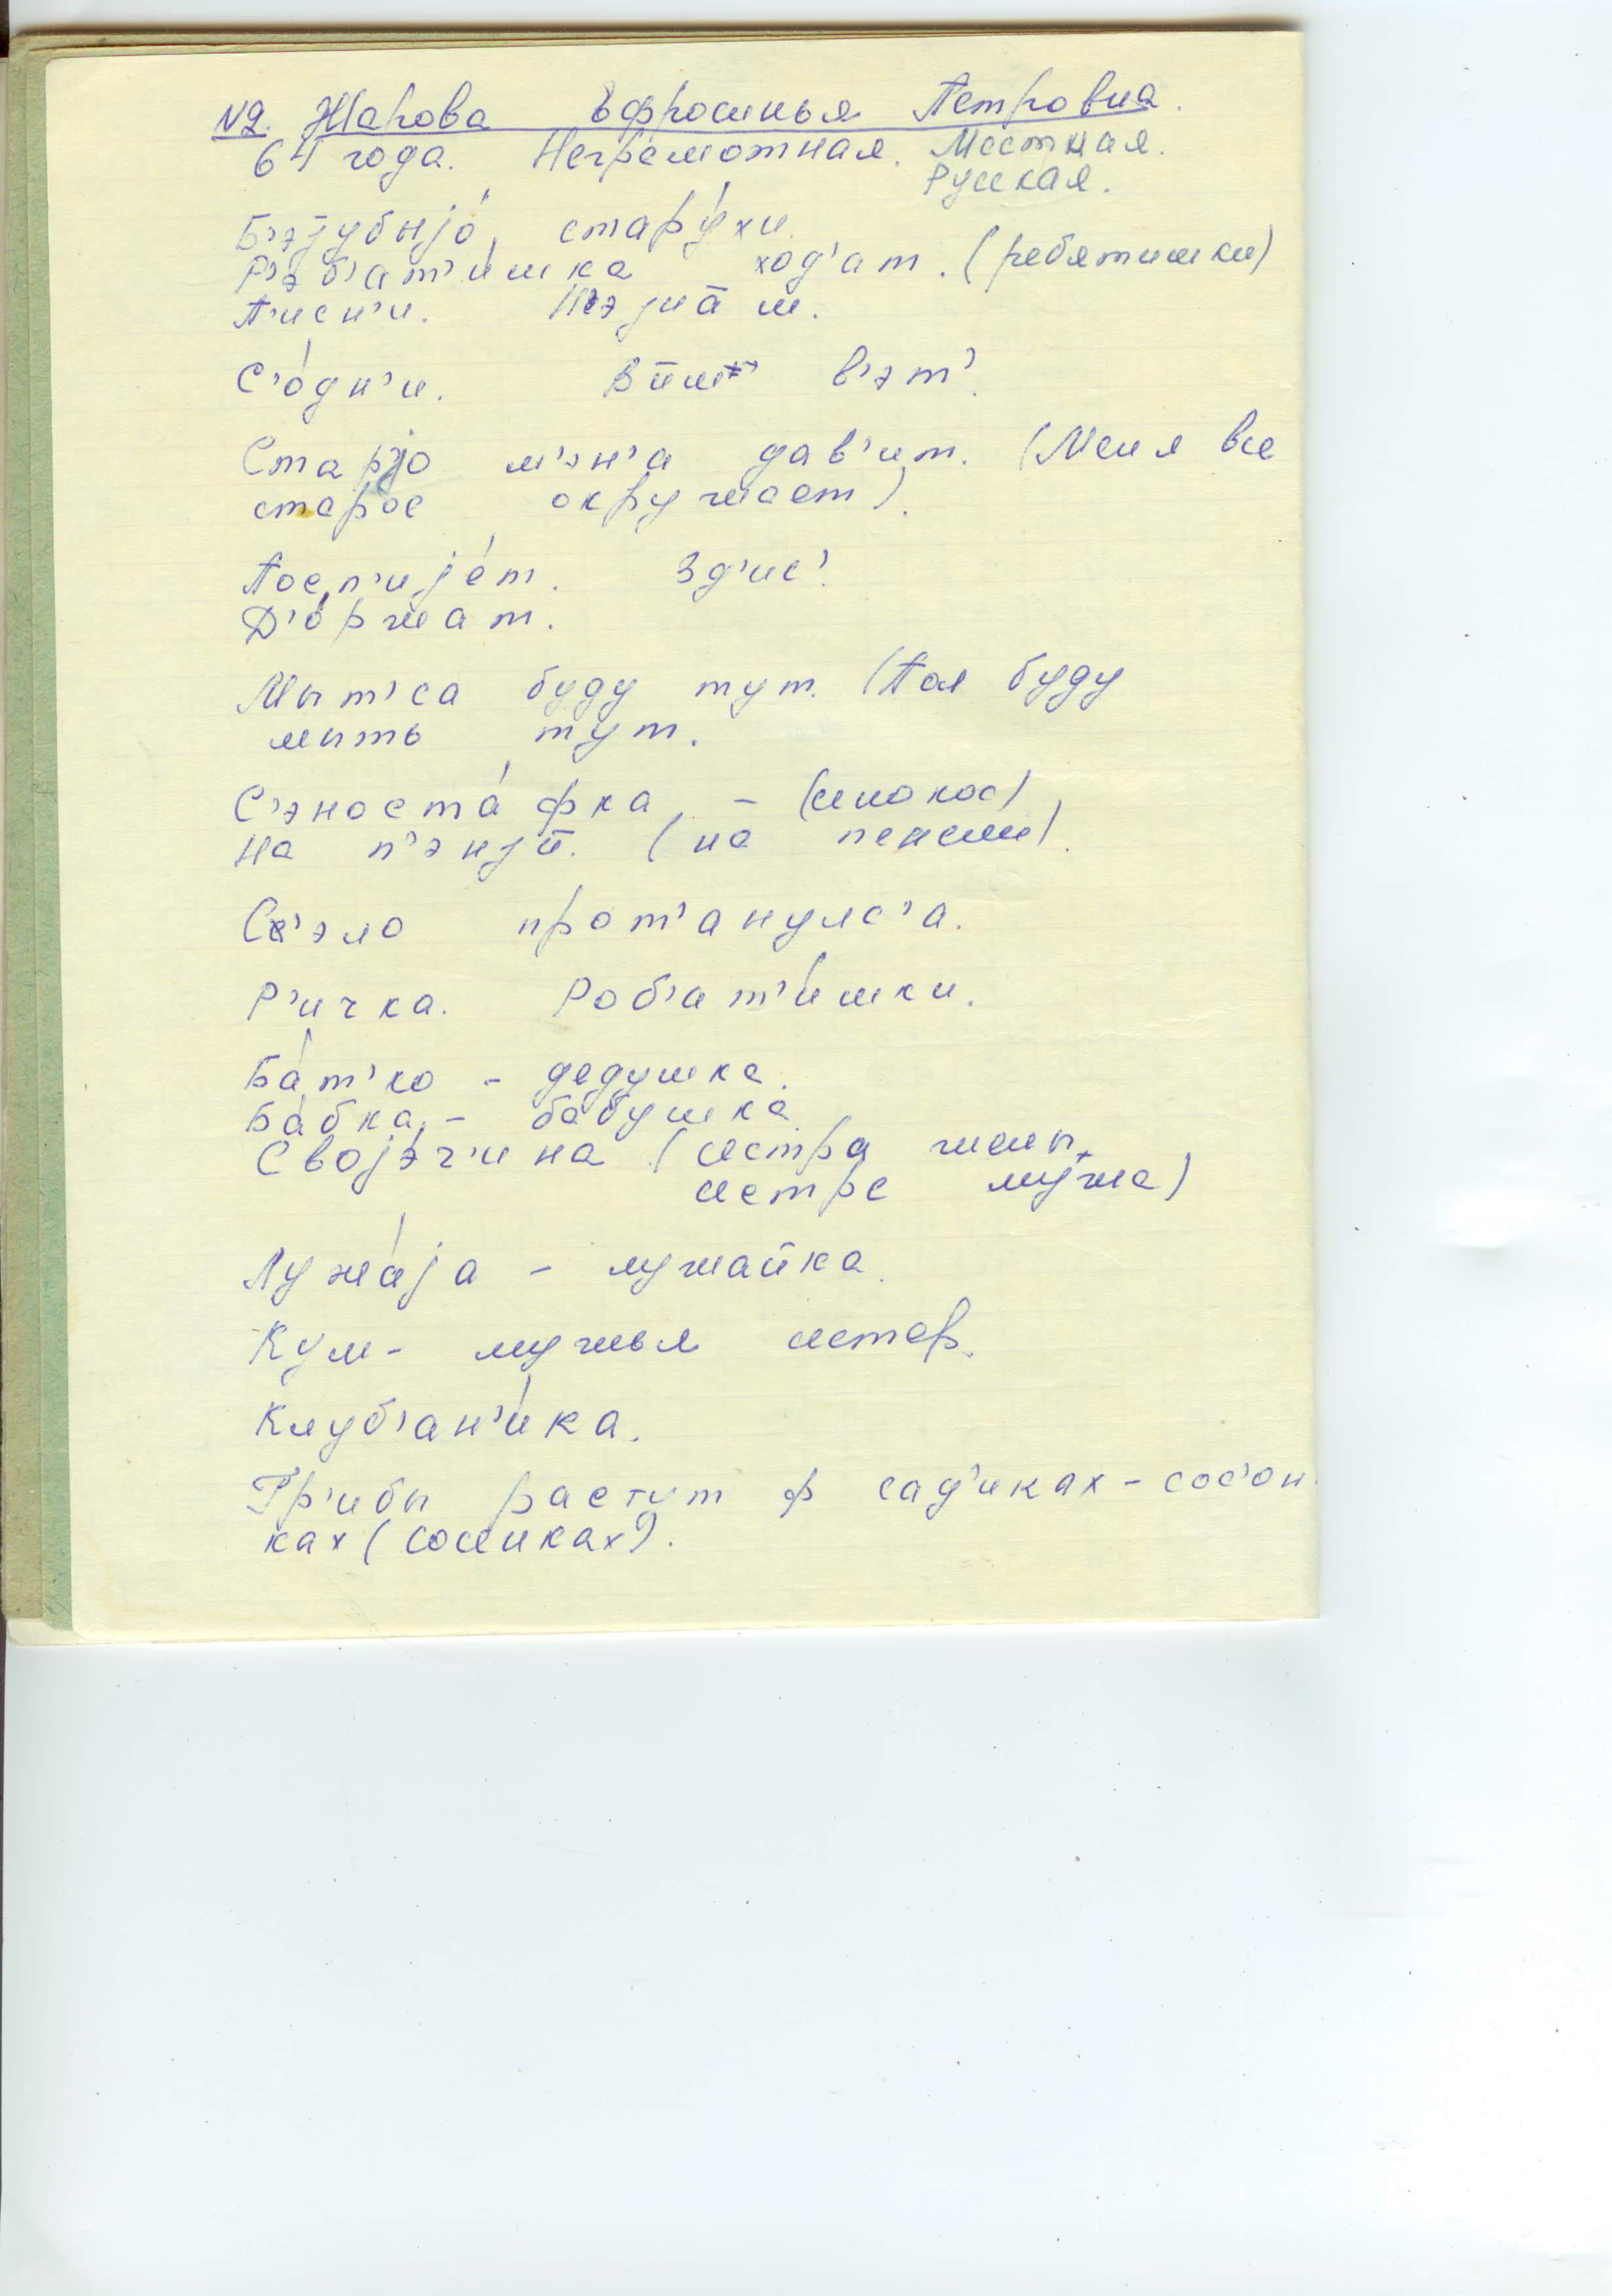 №2. Жарова Ефросинья Петровна.
64 года. Неграмотная. Местная.
Русская.
Б'эзубыjо́ стару́хи.
Р'эб'ат'и́шка ход'ат. (ребятишки)
П'ис'н'и.
С'о́дн'и. в'эт'.
Старjо м'эн'а дав'ит. (Меня все
старое окружает).
Посп'иjе́т. Зд'ис'.
Д'о́ржат.
Мыт'са буду тут. (Пол буду
мыть тут.
С'эноста́фка, – (сенокос)
На п'энзиi. (на пенсии).
С'эло прот'анулс'а.
Р'ичка. Роб'ат'и́шки.
Ба́т'ко – дедушка.
Ба́бка, – бабушка
Своjэ́ч'ина (сестра жены,
сестра мужа)
Лужа́jа – лужайка.
Кум – мужья сестер.
Клуб'ан'и́ка.
Гр'ибы растут ф сад'иках – сос'он
ках (сосенках).